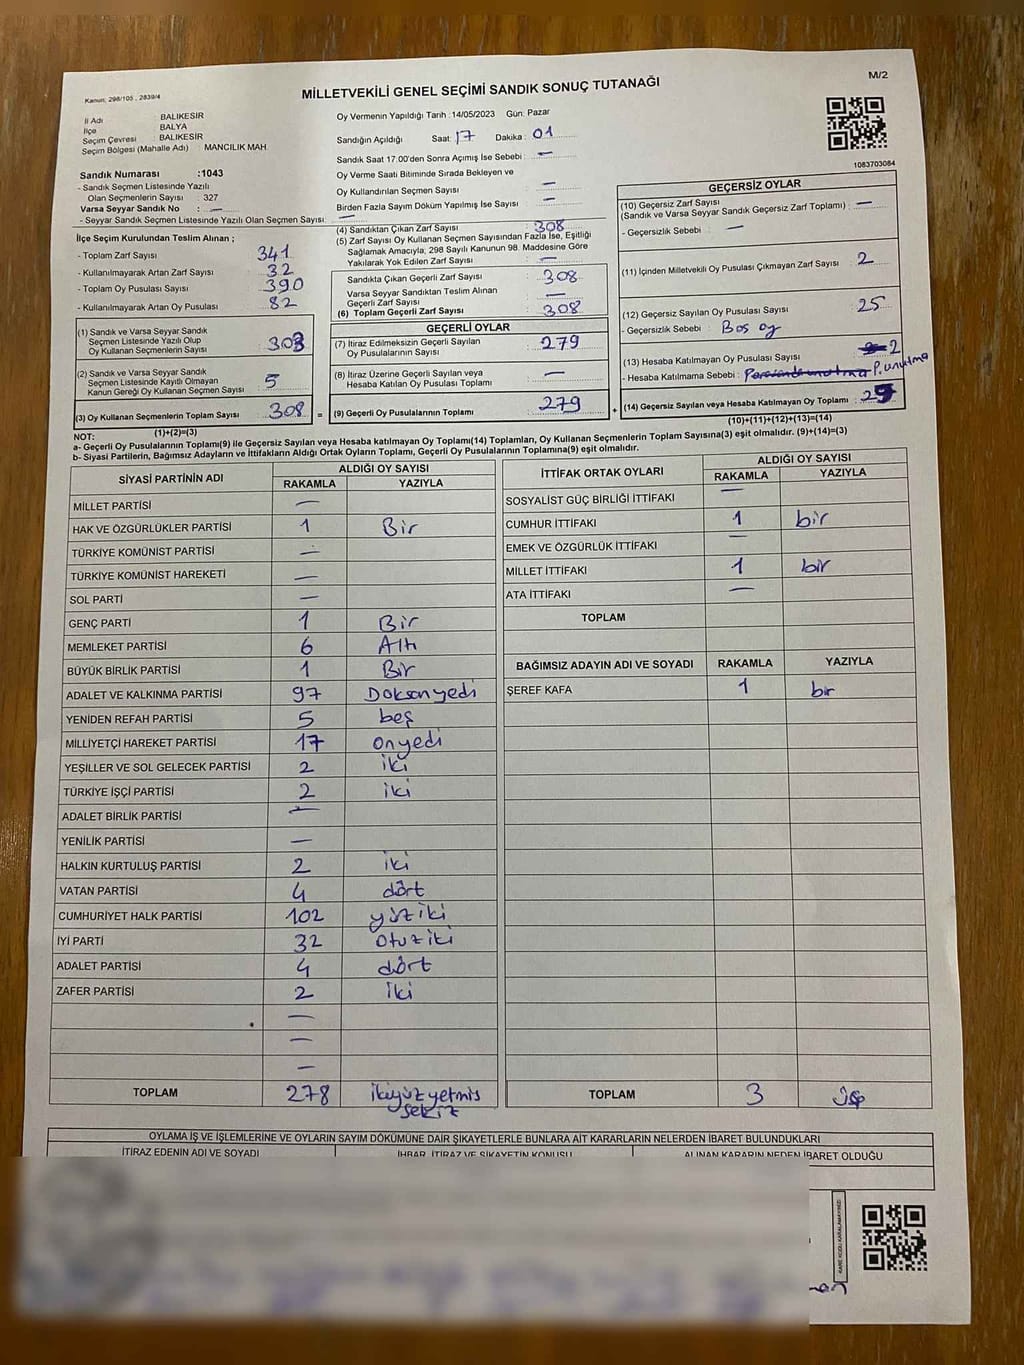 M/2
Kanun: 298/105 , 2839/4
MİLLETVEKİLİ GENEL SEÇİMİ SANDIK SONUÇ TUTANAĞI
İl Adı : BALIKESİR
İlçe : BALYA
Seçim Çevresi : BALIKESİR
Seçim Bölgesi (Mahalle Adı) : MANCILIK MAH.
Sandık Numarası :1043
- Sandık Seçmen Listesinde Yazılı
Olan Seçmenlerin Sayısı : 327
Varsa Seyyar Sandık No : —
- Seyyar Sandık Seçmen Listesinde Yazılı Olan Seçmen Sayısı: —
İlçe Seçim Kurulundan Teslim Alınan ;
- Toplam Zarf Sayısı : 341
- Kullanılmayarak Artan Zarf Sayısı : 32
- Toplam Oy Pusulası Sayısı : 390
- Kullanılmayarak Artan Oy Pusulası : 82
(1) Sandık ve Varsa Seyyar Sandık
Seçmen Listesinde Yazılı Olup
Oy Kullanan Seçmenlerin Sayısı : 303
(2) Sandık ve Varsa Seyyar Sandık
Seçmen Listesinde Kayıtlı Olmayan
Kanun Gereği Oy Kullanan Seçmen Sayısı : 5
(3) Oy Kullanan Seçmenlerin Toplam Sayısı : 308 =
(1)+(2)=(3)
Oy Vermenin Yapıldığı Tarih :14/05/2023 Gün: Pazar
Sandığın Açıldığı Saat: 17 Dakika: 01
Sandık Saat 17.00'den Sonra Açımış İse Sebebi : —
Oy Verme Saati Bitiminde Sırada Bekleyen ve
Oy Kullandırılan Seçmen Sayısı : —
Birden Fazla Sayım Döküm Yapılmış İse Sayısı : —
(4) Sandıktan Çıkan Zarf Sayısı : 308
(5) Zarf Sayısı Oy Kullanan Seçmen Sayısından Fazla İse, Eşitliği
Sağlamak Amacıyla, 298 Sayılı Kanunun 98. Maddesine Göre
Yakılarak Yok Edilen Zarf Sayısı : —
Sandıkta Çıkan Geçerli Zarf Sayısı : 308
Varsa Seyyar Sandıktan Teslim Alınan
Geçerli Zarf Sayısı : —
(6) Toplam Geçerli Zarf Sayısı : 308
GEÇERLİ OYLAR
(7) İtiraz Edilmeksizin Geçerli Sayılan
Oy Pusulalarının Sayısı : 279
(8) İtiraz Üzerine Geçerli Sayılan veya
Hesaba Katılan Oy Pusulası Toplamı : —
(9) Geçerli Oy Pusulalarının Toplamı : 279 +
1083703084
GEÇERSİZ OYLAR
(10) Geçersiz Zarf Sayısı
(Sandık ve Varsa Seyyar Sandık Geçersiz Zarf Toplamı) : —
- Geçersizlik Sebebi : —
(11) İçinden Milletvekili Oy Pusulası Çıkmayan Zarf Sayısı : 2
(12) Geçersiz Sayılan Oy Pusulası Sayısı : 25
- Geçersizlik Sebebi : Bos oy
(13) Hesaba Katılmayan Oy Pusulası Sayısı : 2
- Hesaba Katılmama Sebebi : P. unutma
(14) Geçersiz Sayılan veya Hesaba Katılmayan Oy Toplamı : 29
(10)+(11)+(12)+(13)=(14)
NOT:
a- Geçerli Oy Pusulalarının Toplamı(9) ile Geçersiz Sayılan veya Hesaba katılmayan Oy Toplamı(14) Toplamları, Oy Kullanan Seçmenlerin Toplam Sayısına(3) eşit olmalıdır. (9)+(14)=(3)
b- Siyasi Partilerin, Bağımsız Adayların ve İttifakların Aldığı Ortak Oyların Toplamı, Geçerli Oy Pusulalarının Toplamına(9) eşit olmalıdır.
SİYASİ PARTİNİN ADI ALDIĞI OY SAYISI
RAKAMLA YAZIYLA
MİLLET PARTİSİ —
HAK VE ÖZGÜRLÜKLER PARTİSİ 1 Bir
TÜRKİYE KOMÜNİST PARTİSİ —
TÜRKİYE KOMÜNİST HAREKETİ —
SOL PARTİ —
GENÇ PARTİ 1 Bir
MEMLEKET PARTİSİ 6 Altı
BÜYÜK BİRLİK PARTİSİ 1 Bir
ADALET VE KALKINMA PARTİSİ 97 Doksanyedi
YENİDEN REFAH PARTİSİ 5 beş
MİLLİYETÇİ HAREKET PARTİSİ 17 onyedi
YEŞİLLER VE SOL GELECEK PARTİSİ 2 iki
TÜRKİYE İŞÇİ PARTİSİ 2 iki
ADALET BİRLİK PARTİSİ —
YENİLİK PARTİSİ —
HALKIN KURTULUŞ PARTİSİ 2 iki
VATAN PARTİSİ 4 dört
CUMHURİYET HALK PARTİSİ 102 yüziki
İYİ PARTİ 32 otuziki
ADALET PARTİSİ 4 dört
ZAFER PARTİSİ 2 iki
—
—
—
TOPLAM 278 ikiyüzyetmis
sekiz
İTTİFAK ORTAK OYLARI ALDIĞI OY SAYISI
RAKAMLA YAZIYLA
SOSYALİST GÜÇ BİRLİĞİ İTTİFAKI —
CUMHUR İTTİFAKI 1 bir
EMEK VE ÖZGÜRLÜK İTTİFAKI —
MİLLET İTTİFAKI 1 bir
ATA İTTİFAKI —
TOPLAM
BAĞIMSIZ ADAYIN ADI VE SOYADI RAKAMLA YAZIYLA
ŞEREF KAFA 1 bir
TOPLAM 3 üç
OYLAMA İŞ VE İŞLEMLERİNE VE OYLARIN SAYIM DÖKÜMÜNE DAİR ŞİKAYETLERLE BUNLARA AİT KARARLARIN NELERDEN İBARET BULUNDUKLARI
İTİRAZ EDENİN ADI VE SOYADI İHBAR, İTİRAZ VE ŞİKAYETİN KONUSU ALINAN KARARIN NEDEN İBARET OLDUĞU